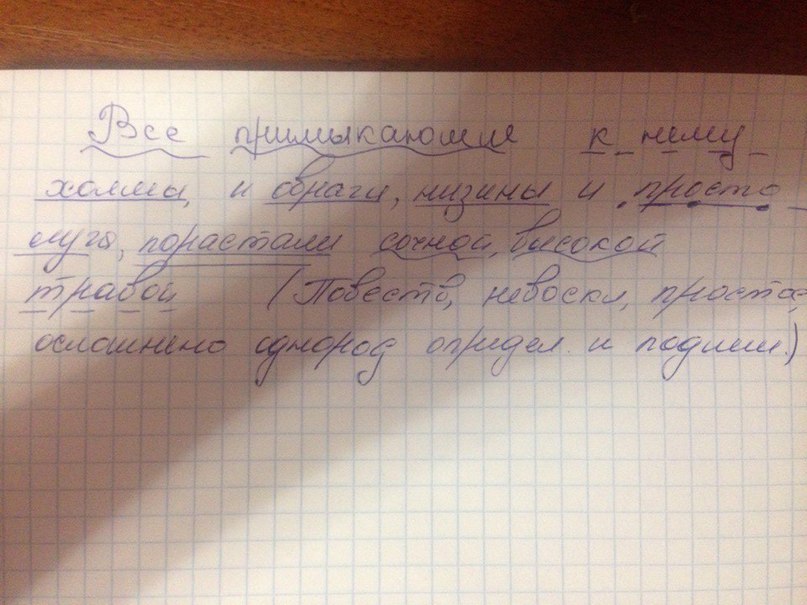 Все примыкающие к нему
холмы, и овраги, низины и просто
луга, порастали сочной, высокой
травой (Повеств, невоскл, простое
осложнено однород опридел. и подлеж.)